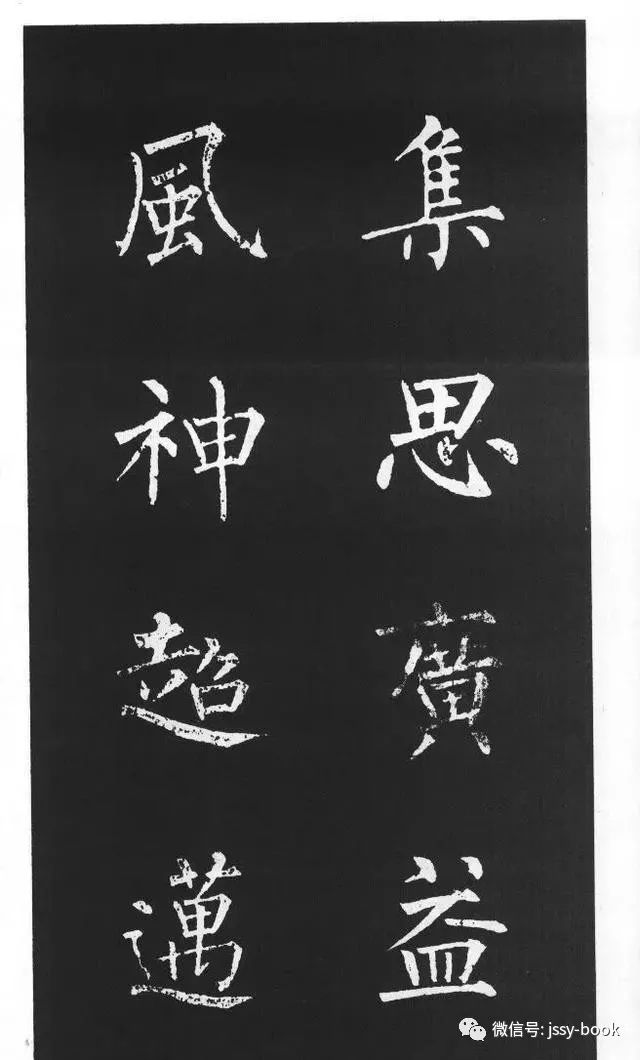 集思廣益
風神超邁
微信号: jssy-book